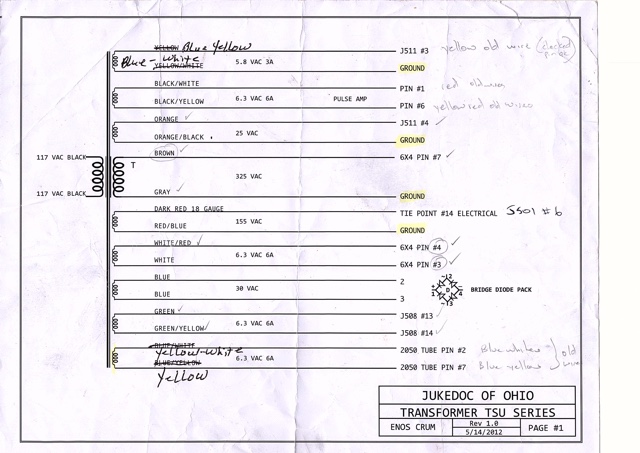 YELLOW Blue Yellow
Blue-White YELLOW/WHITE
5.8 VAC 3A
J511 #3 yellow old wire
GROUND
BLACK/WHITE
PIN #1 red old
BLACK/YELLOW 6.3 VAC 6A PULSE AMP PIN #6 yellow red old wires
ORANGE
J511 #4
25 VAC
ORANGE/BLACK
GROUND
BROWN
117 VAC BLACK 6X4 PIN #7
T
325 VAC
117 VAC BLACK GRAY GROUND
DARK RED 18 GAUGE
TIE POINT #14 ELECTRICAL J501 #6
155 VAC
RED/BLUE
GROUND
WHITE/RED
6X4 PIN #4
WHITE 6.3 VAC 6A
6X4 PIN #3
BLUE
2
30 VAC
BLUE
3
~2
+ 1 D 4 -
~3
BRIDGE DIODE PACK
GREEN
J508 #13
6.3 VAC 6A
GREEN/YELLOW
J508 #14
BLUE/WHITE
Yellow-White
2050 TUBE PIN #2 Blue white
old
6.3 VAC 6A
BLUE/YELLOW
Yellow
2050 TUBE PIN #7 Blue yellow
JUKEDOC OF OHIO
TRANSFORMER TSU SERIES
ENOS CRUM
Rev 1.0
5/14/2012
PAGE #1